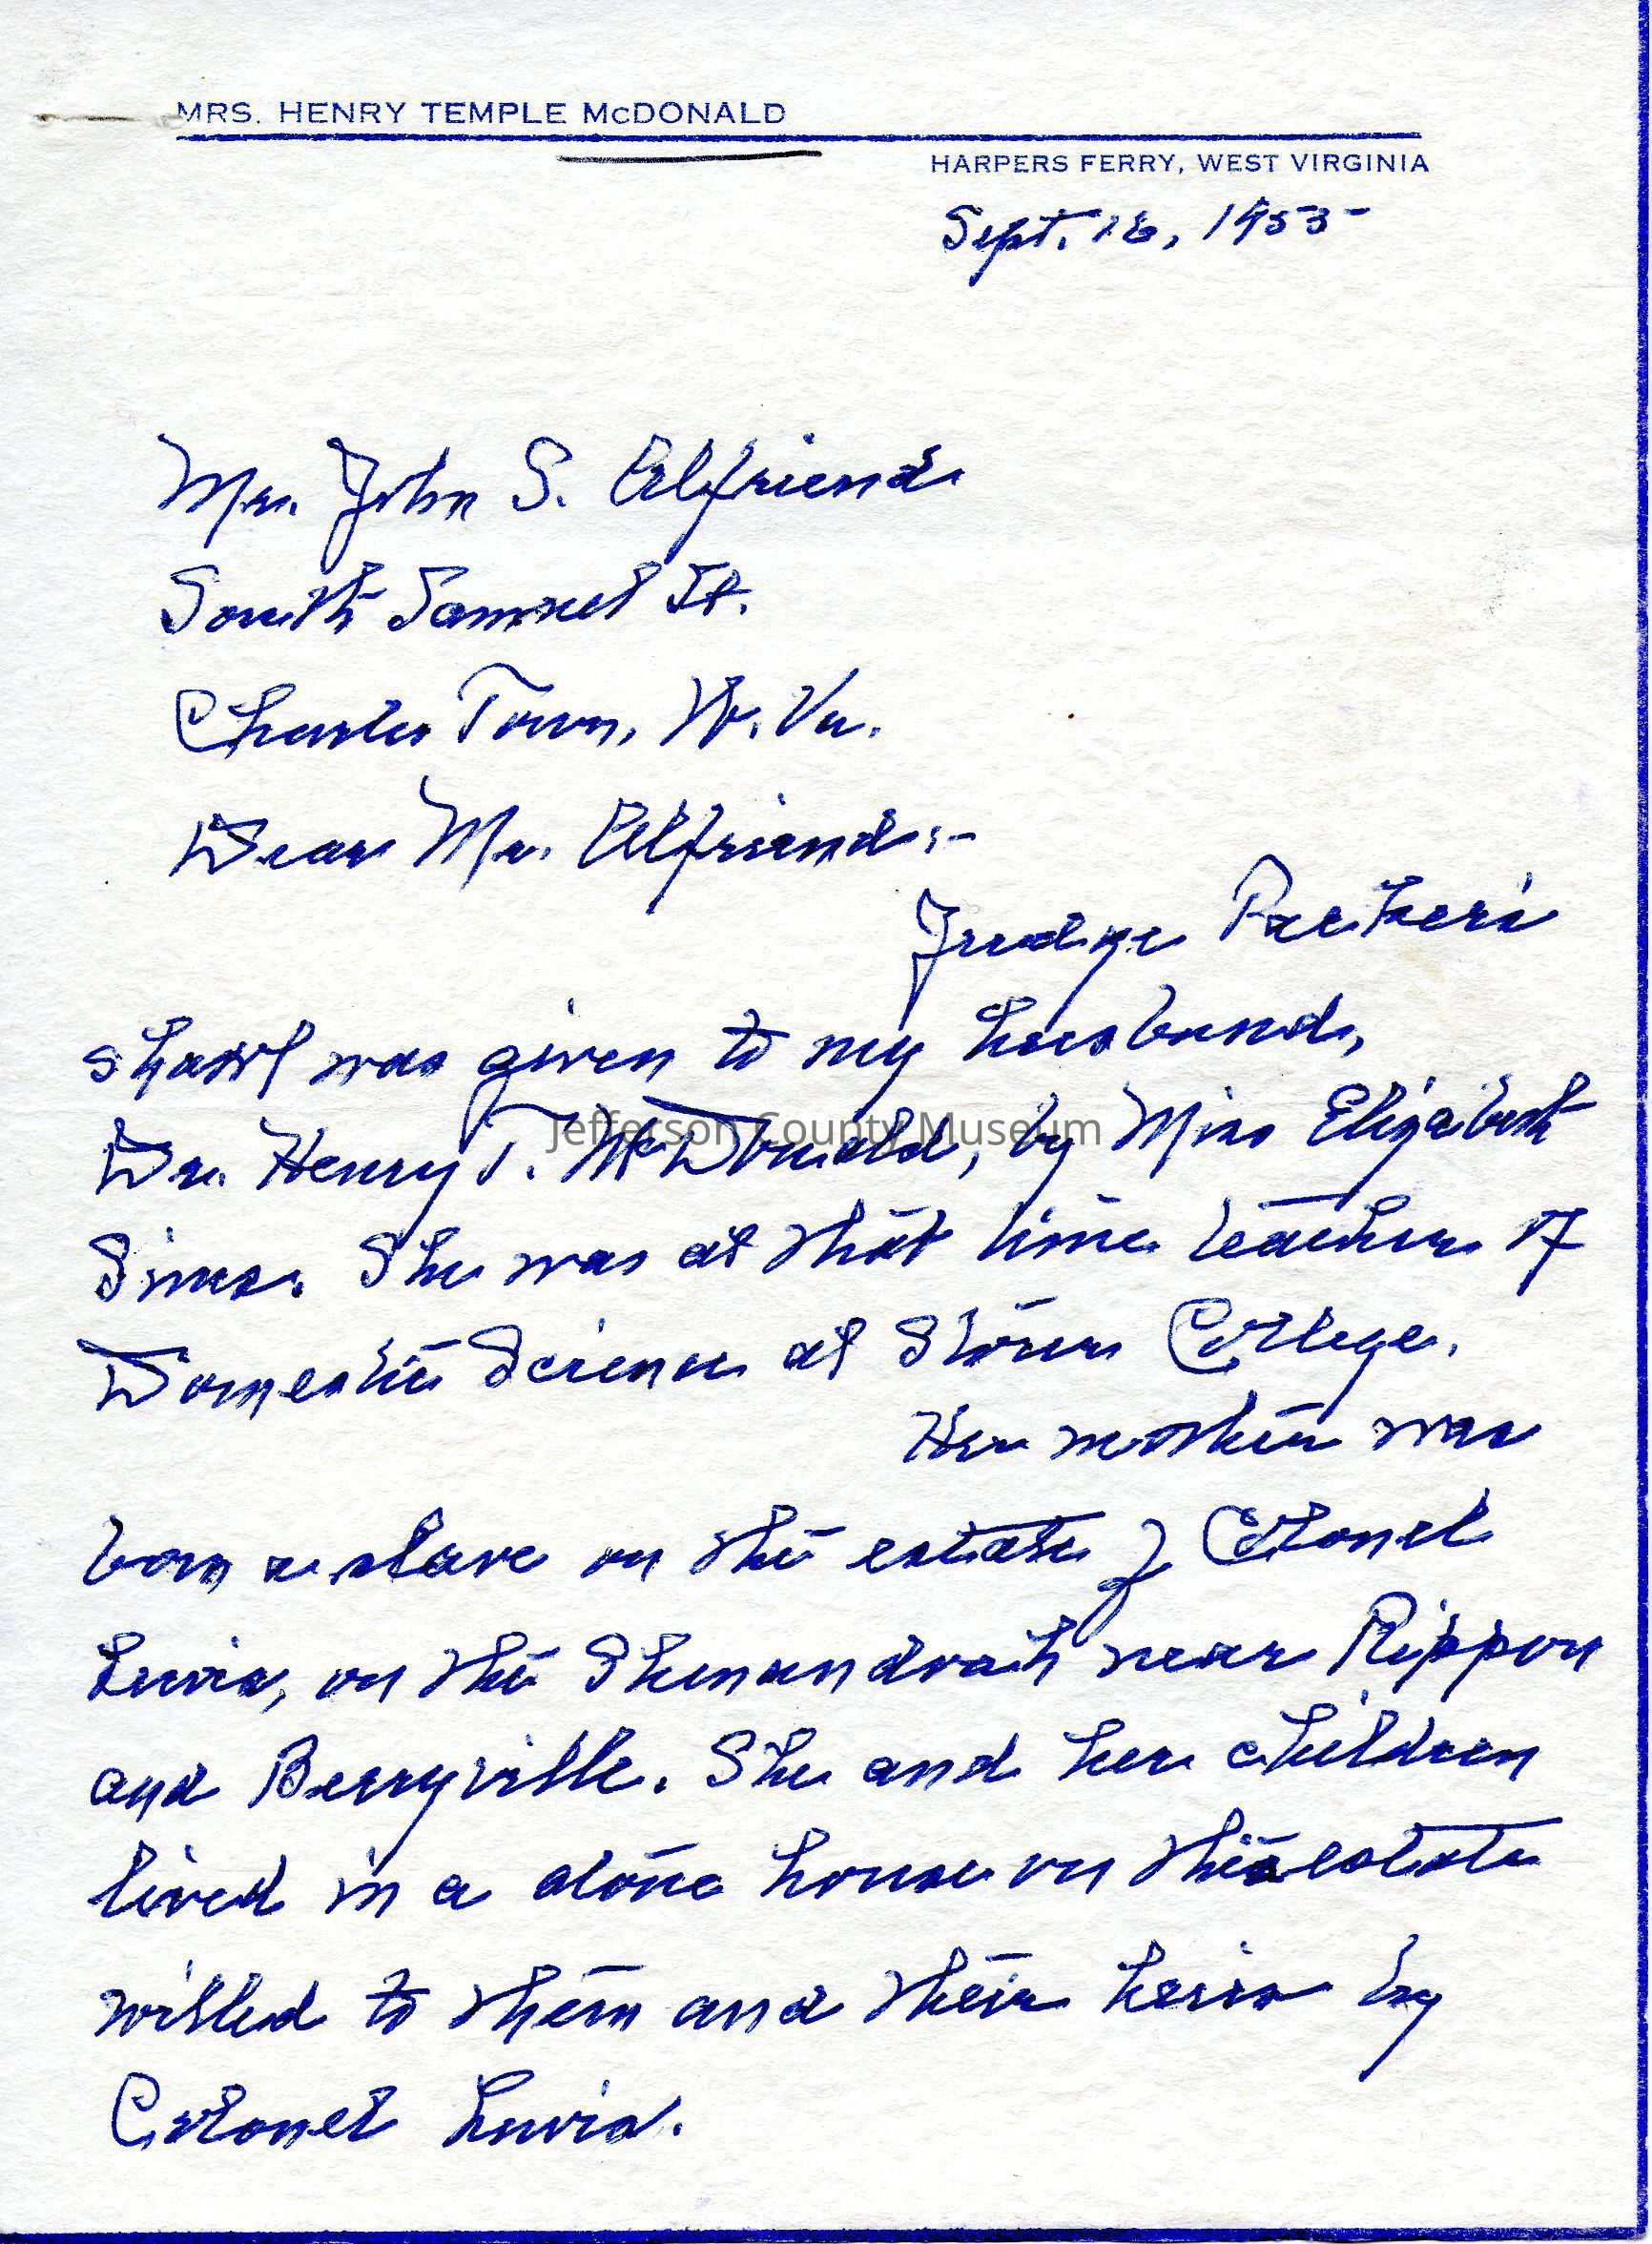 MRS. HENRY TEMPLE McDONALD
HARPERS FERRY, WEST VIRGINIA
Sept. 16, 1955
Mr. John S. Alfriend
South Samuel St.
Charles Town, W. Va.
Dear Mr. Alfriend:-
Judge Parker's
shawl was given to my husband,
Jefferson County Museum
Dr. Henry T. McDonald, by Miss Elizabeth
Sims. She was at that time teacher of
Domestic Science at Storer College.
Her mother was
born a slave on the estate of Colonel
Lewis, on the Shenandoah near Rippon
and Berryville. She and her children
lived in a stone house on this estate
willed to them and their heirs by
Colonel Lewis.